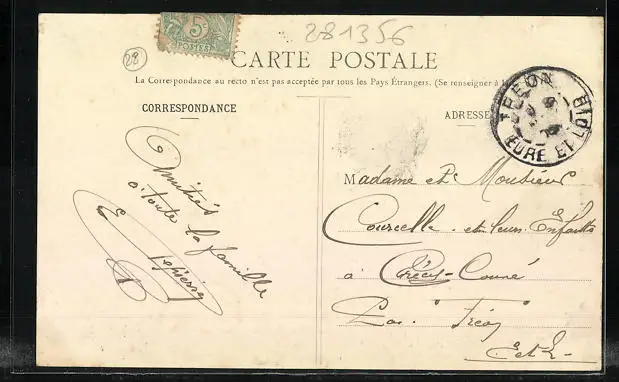 281356
28
5c
POSTES
CARTE POSTALE
La Correspondance au recto n'est pas acceptée par tous les Pays Étrangers. (Se renseigner à l
CORRESPONDANCE
ADRESSE
TREON
EURE ET LOIR
Amitiés
à toute la famille
Madame et Monsieur
Courcelle et leurs Enfants
à Crécy-Couvé
Par Tréon
E et L